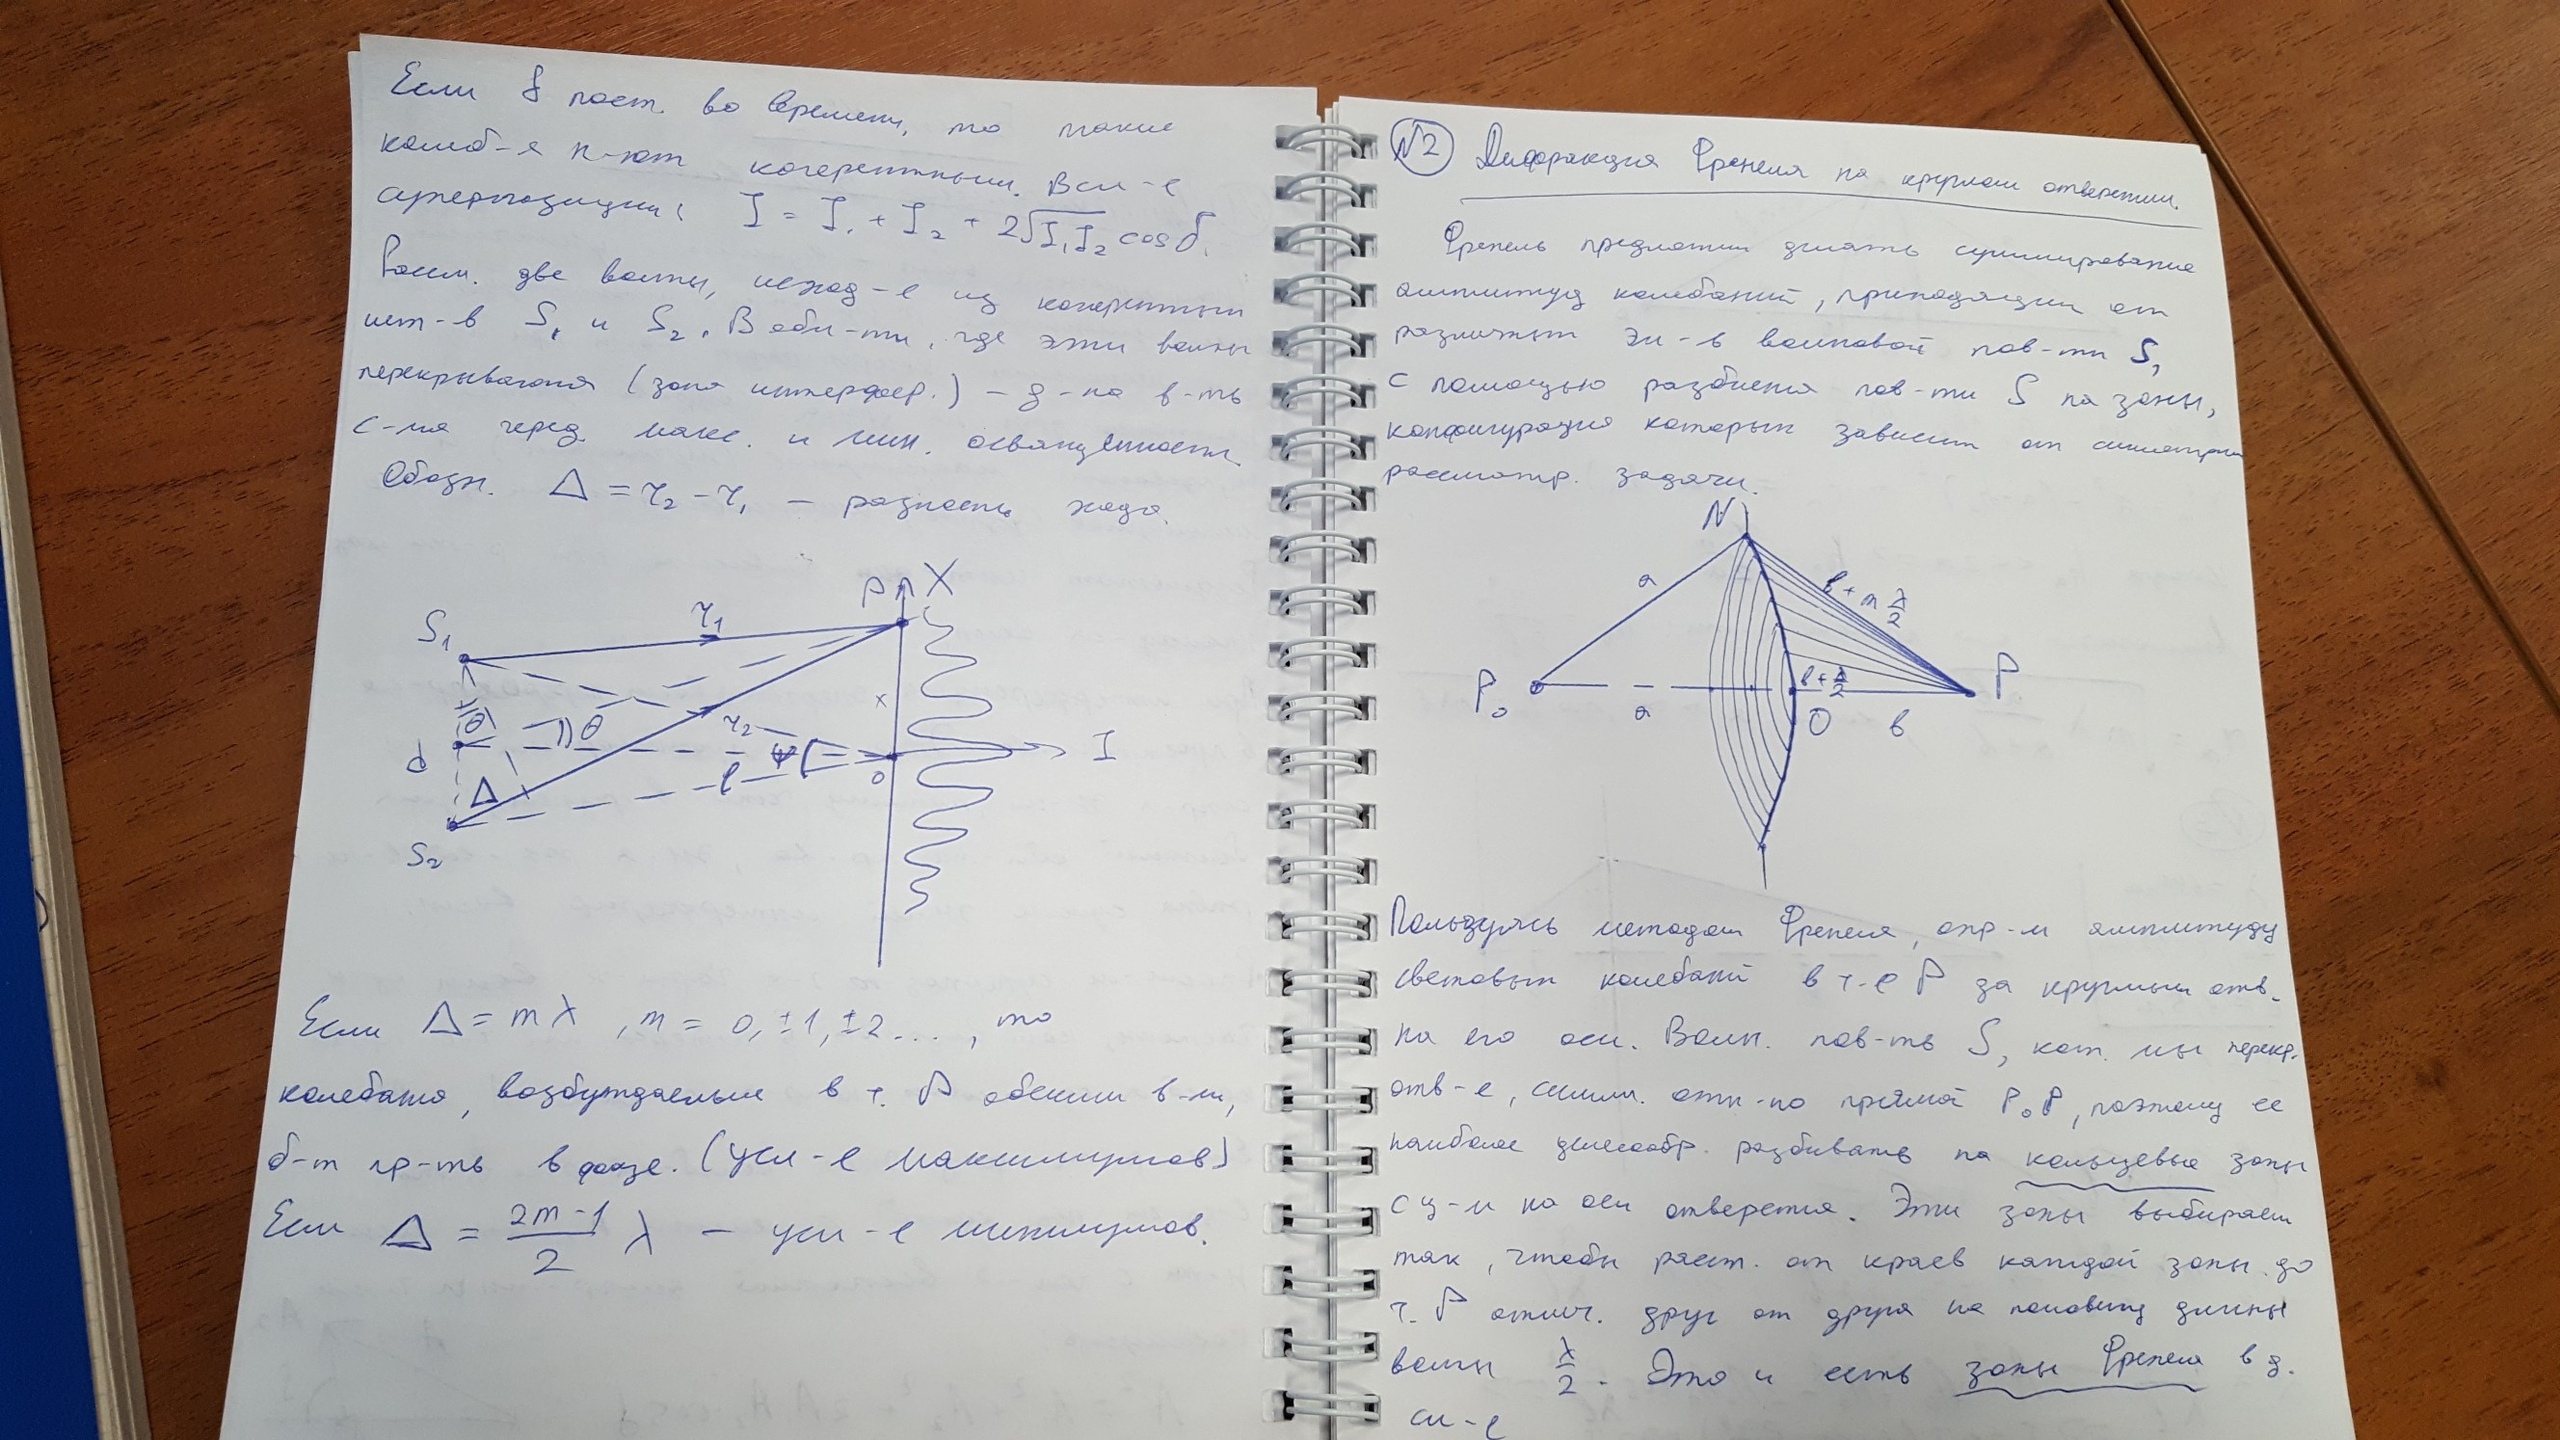 Если δ пост. во времени, то такие
колеб-я н-ют когерентными. В сл-е
суперпозиции: I = I₁ + I₂ + 2√(I₁I₂) cos δ.
Рассм. две волны, исход-е из когерентных
ист-в S₁ и S₂. В обл-ти, где эти волны
перекрываются (зона интерфер.) – д-на в-ть
с-мя черед. макс. и мин. освещенности.
Обозн. Δ = r₂ – r₁ – разность хода.
P X
S₁ r₁
x
θ θ r₂
d ψ I
Δ l 0
S₂
Если Δ = mλ, m = 0, ±1, ±2..., то
колебания, возбуждаемые в т. P обеими в-ми,
б-т пр-ть в фазе. (усл-е максимумов)
Если Δ = (2m-1)/2 λ – усл-е минимумов.
№2 Дифракция Френеля на круглом отверстии.
Френель предложил делать суммирование
амплитуд колебаний, приходящих от
различных эл-в волновой пов-ти S,
с помощью разбиения пов-ти S на зоны,
конфигурация которых зависит от симметрии
рассматр. задачи.
N
a b + m λ/2
P₀ b + λ/2 P
a O b
Пользуясь методом Френеля, опр-м амплитуду
световых колебаний в т-е P за круглым отв.
на его оси. Волн. пов-ть S, кот. мы перекр.
отв-е, симм. отн-но прямой P₀P, поэтому ее
наиболее целесообр. разбивать на кольцевые зоны
с ц-м на оси отверстия. Эти зоны выбираем
так, чтобы расст. от краев каждой зоны до
т. P отлич. друг от друга на половину длины
волны λ/2. Это и есть зоны Френеля в д.
сл-е